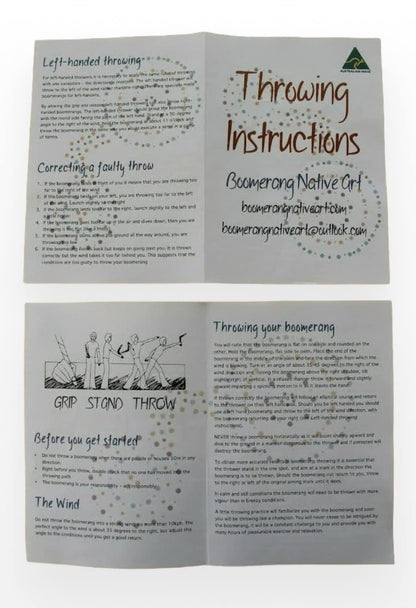 Left-handed throwing
For left-handed throwers it is necessary to apply the same rules of throwing
with one variation - the directions are reversed. The left-handed thrower will
throw to the left of the wind rather than the right. There are specially made
boomerangs for left-handers.
By altering the grip and release left-handed throwers can also throw right-
handed boomerangs. The left-handed thrower should throw the boomerang
with the round side facing the palm of the left hand. Stand at a 50 degree
angle to the right of the wind, hold the boomerang at about 11 o'clock and
throw the boomerang in the same way you would execute a serve in a game
of tennis.
Correcting a faulty throw
1. If the boomerang lands in front of you it means that you are throwing too
far to the right of the wind
2. If the boomerang lands on your left, you are throwing too far to the left
of the wind. Launch slightly to the right
3. If the boomerang lands to the right, launch slightly to the left and
4. If the boomerang goes too far up in the air and dives down, then you are
throwing it too flat
5. If the boomerang stays above the ground all the way around, you are
throwing
6. If the boomerang comes back but keeps on going past you, it is thrown
correctly but the wind takes it too far behind you. This suggests that the
conditions are too gusty to throw your boomerang
AUSTRALIAN MADE
Throwing
Instructions
Boomerang Native Art
boomerangnativeart.com
boomerangnativeart@outlook.com
GRIP STAND THROW
Before you get started
• Do not throw a boomerang when there are people or houses 50m in any
direction.
• Right before you throw, double check that no one has moved into the
throwing path.
• The boomerang is your responsibility - act responsibly
The Wind
Do not throw the boomerang into a strong wind, no more than 10kph. The
perfect angle to the wind is about 35 degrees to the right, but adjust this
angle to the conditions until you get a good return.
Throwing your boomerang
You will note that the boomerang is flat on one side and rounded on the
other. Hold the boomerang, flat side to palm. Place the end of the
boomerang in the middle of the palm and face the direction from which the
wind is blowing. Turn at an angle of about 35-45 degrees to the right of the
wind direction and, raising the boomerang above the right shoulder, tilt
slightly right of vertical. In a relaxed manner throw it forward and slightly
upward imparting a spinning motion to it as it leaves the hand.
If thrown correctly the boomerang will follow an elliptical course and return
to the thrower on their left handside. Should you be left handed you should
use a left hand boomerang and throw to the left of the wind direction, with
the boomerang returning on your right (see Left-handed throwing
instructions).
NEVER throw a boomerang horizontally as it will soar sharply upward and
dive to the ground in a manner dangerous to the thrower and if persisted will
destroy the boomerang.
To obtain more accuracy in boomerang throwing it is essential that
the thrower stand in the one spot, and aim at a mark in the direction the
boomerang is to be thrown. Should the boomerang not return to you, throw
to the right or left of the original aiming mark until it does.
In calm and still conditions the boomerang will need to be thrown with more
vigour than in breezy conditions.
A little throwing practice will familiarise you with the boomerang and soon
you will be throwing like a champion. You will never cease to be intrigued by
the boomerang, it will be a constant challenge to you and provide you with
many hours of pleasurable exercise and relaxation.